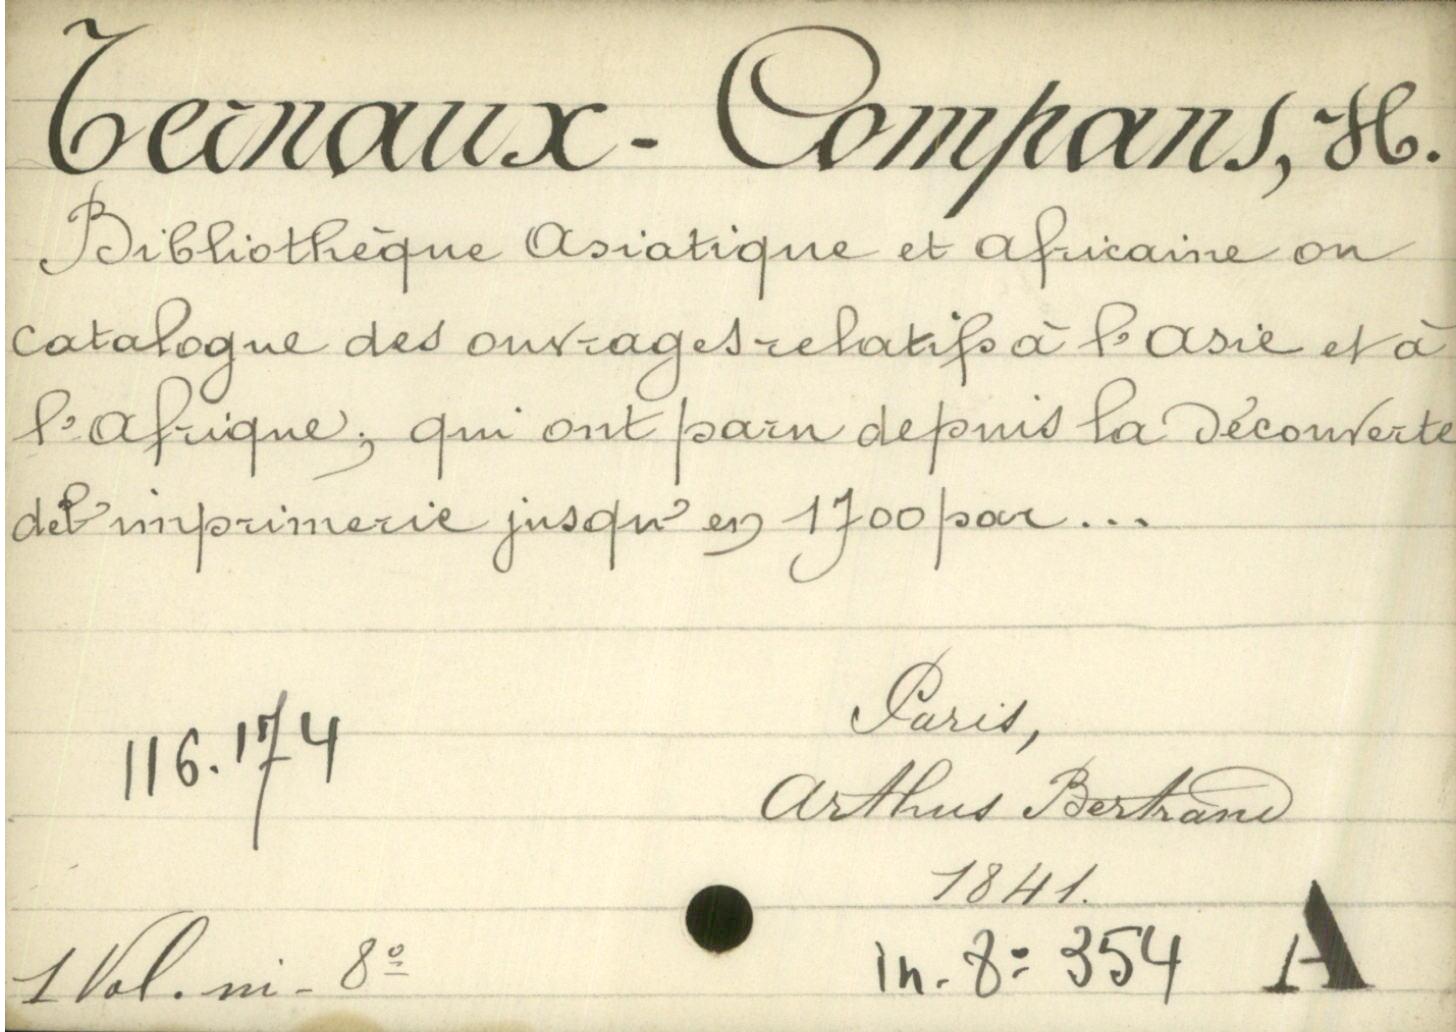 Ternaux-Compans, H.
Bibliothèque Asiatique et Africaine ou
catalogue des ouvrages relatifs à l'Asie et à
l'Afrique; qui ont paru depuis la Découverte
de l'imprimerie jusqu'en 1700 par...
Paris,
116.174
Arthus Bertrand
1841.
1 Vol. in-8º
in-8º 354 A